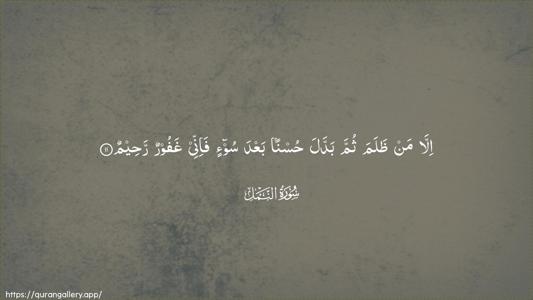 اِلَّا مَنْ ظَلَمَ ثُمَّ بَدَّلَ حُسْنًۢا بَعْدَ سُوْٓءٍ فَاِنِّيْ غَفُوْرٌ رَّحِيْمٌ ۝١١
سُوْرَةُ النَّمْل
https://qurangallery.app/